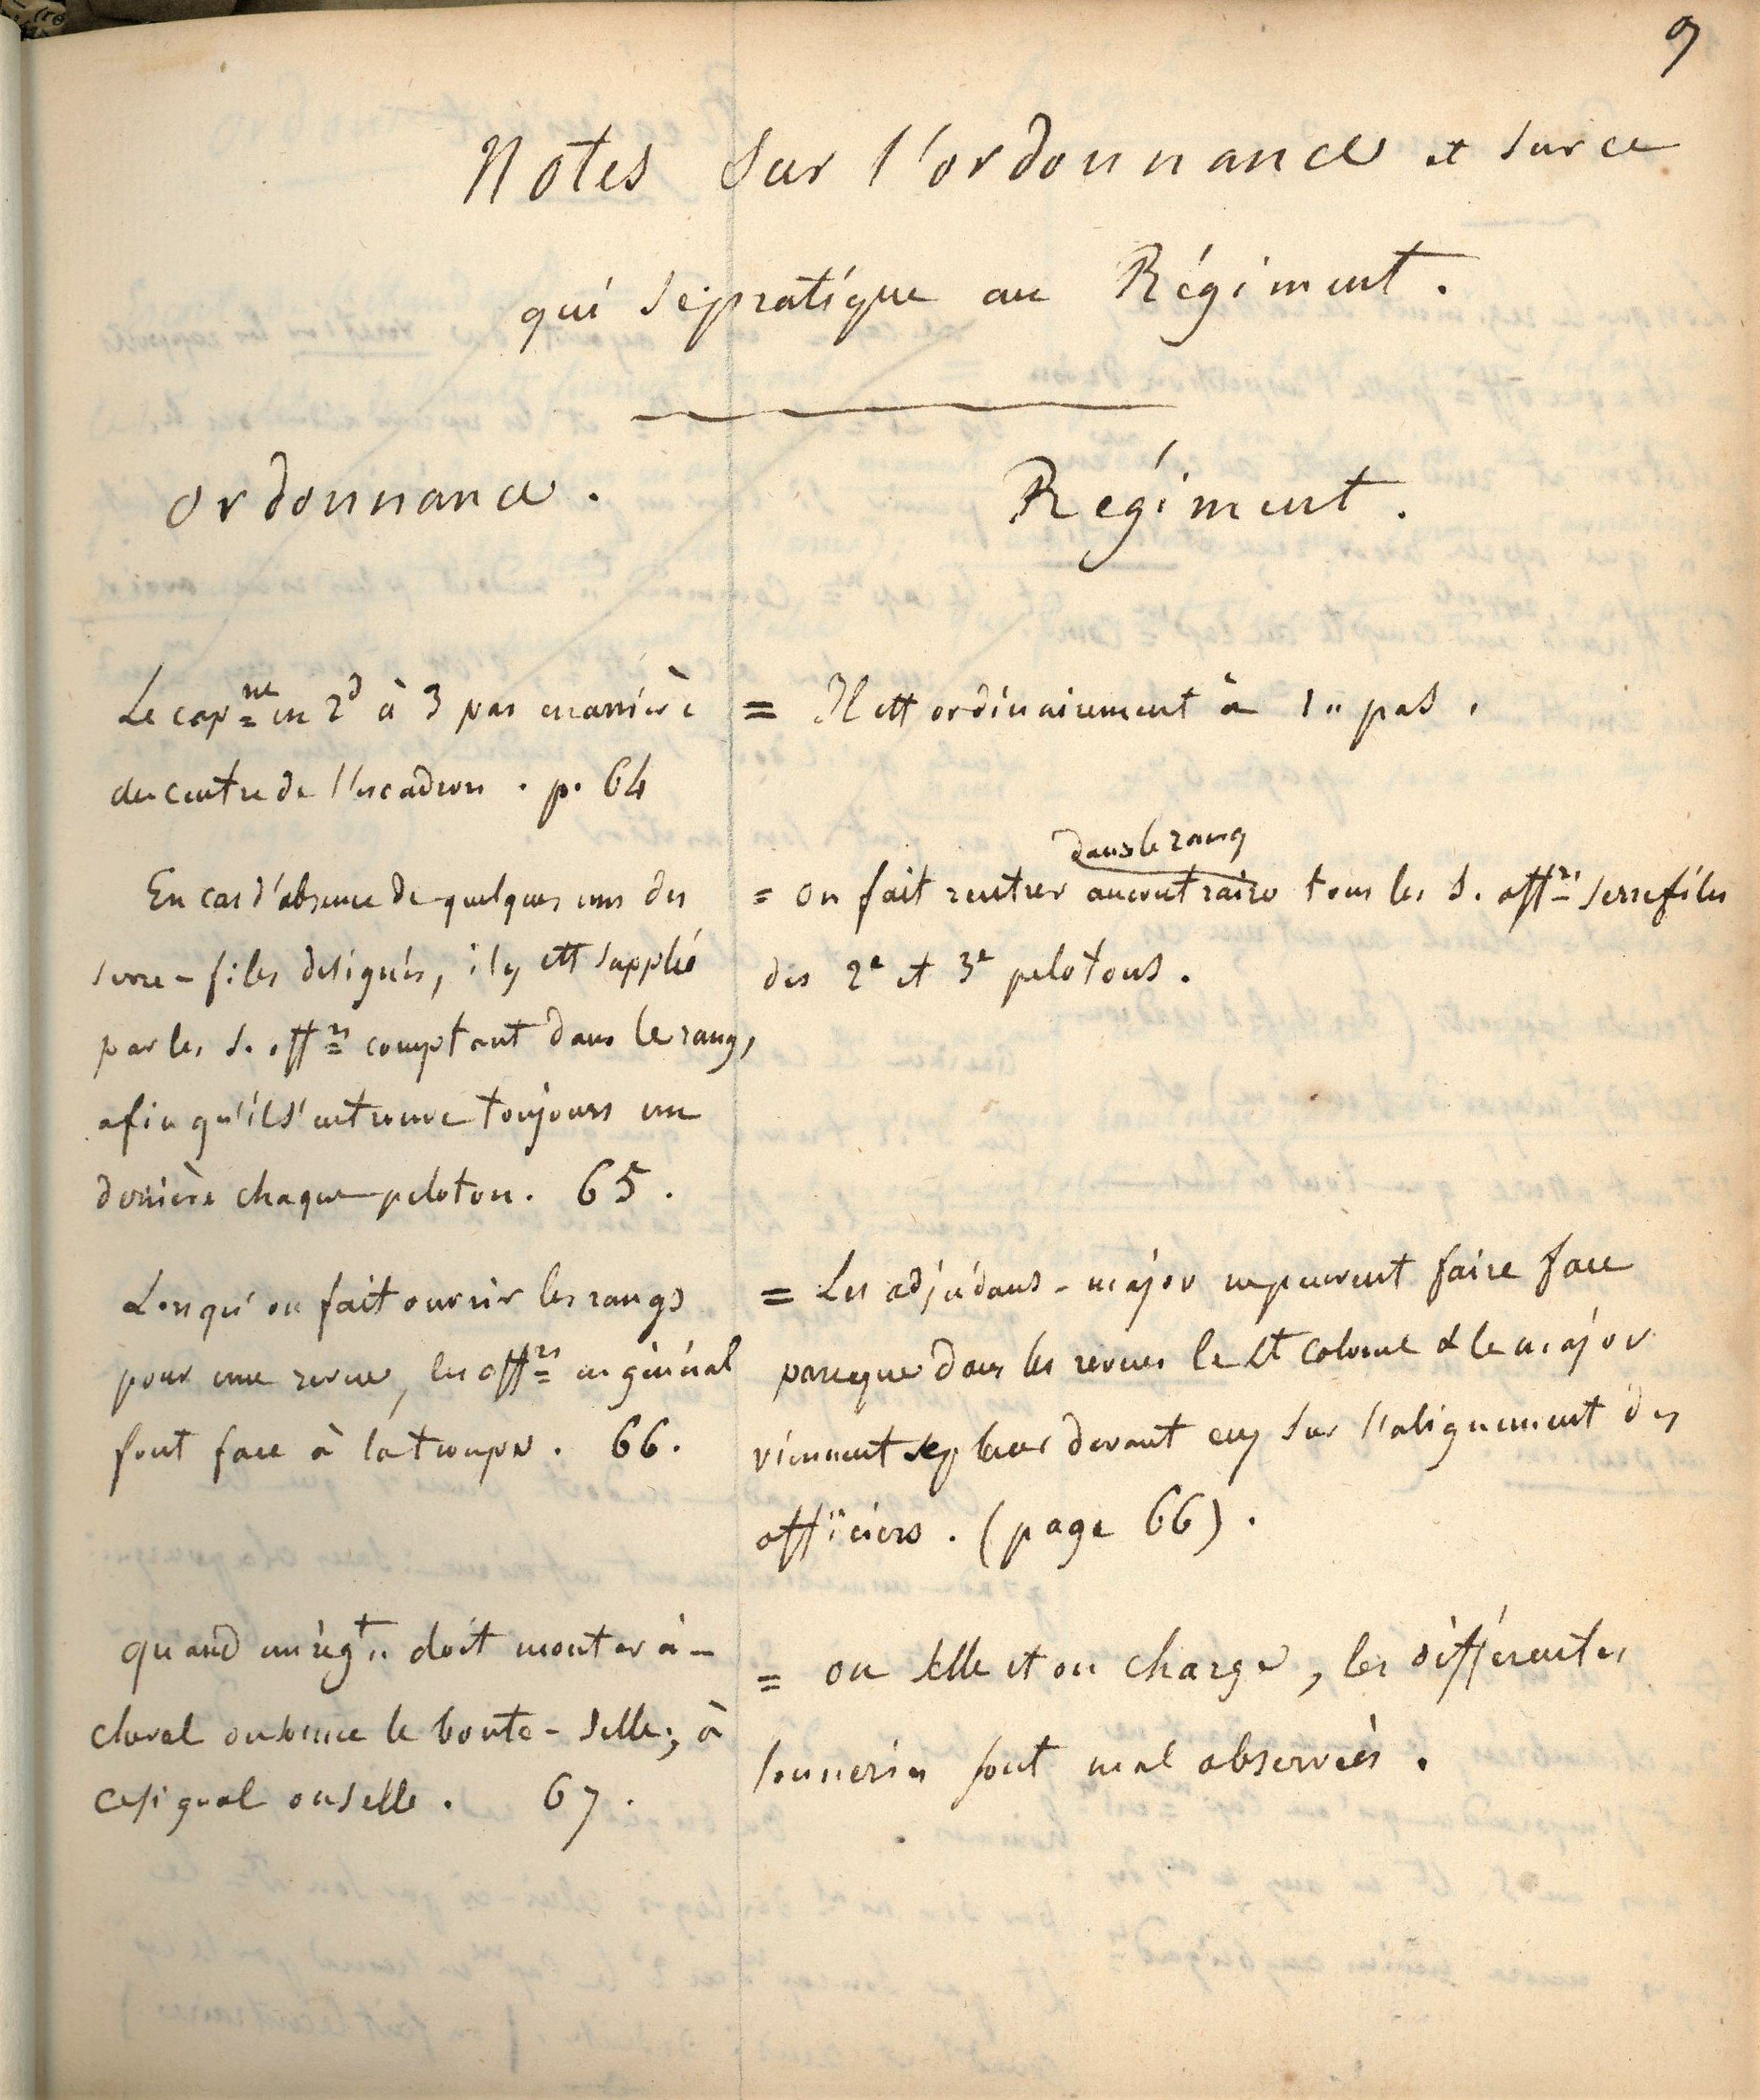 9
Notes sur l'ordonnance et sur ce
qui se pratique au Régiment.
ordonnance.
Régiment.
Le cap.ne en 2d à 3 pas en arrière
du centre de l'escadron. p. 64
= Il est ordinairement à 1 pas.
En cas d'absence de quelques uns des
serre-files designés, il y est supplée
par les s. offrs comptant dans le rang,
afin qu'il s'en trouve toujours un
derrière chaque peloton. 65.
dans le rang
= on fait rentrer au contraire tous les s. offrs serrefiles
des 2e et 3e pelotons.
Lorsqu'on fait ouvrir les rangs
pour une revue, les offrs en général
font face à la troupe. 66.
= Les adjudans-major ne peuvent faire face
parceque dans les revues le Lt colonel & le major
viennent se placer devant eux sur l'alignement des
officiers. (page 66).
quand un régt doit monter à-
cheval on sonne le boute-selle; à
ce signal on selle. 67.
= on selle et on charge, les différentes
sonneries sont mal observées.